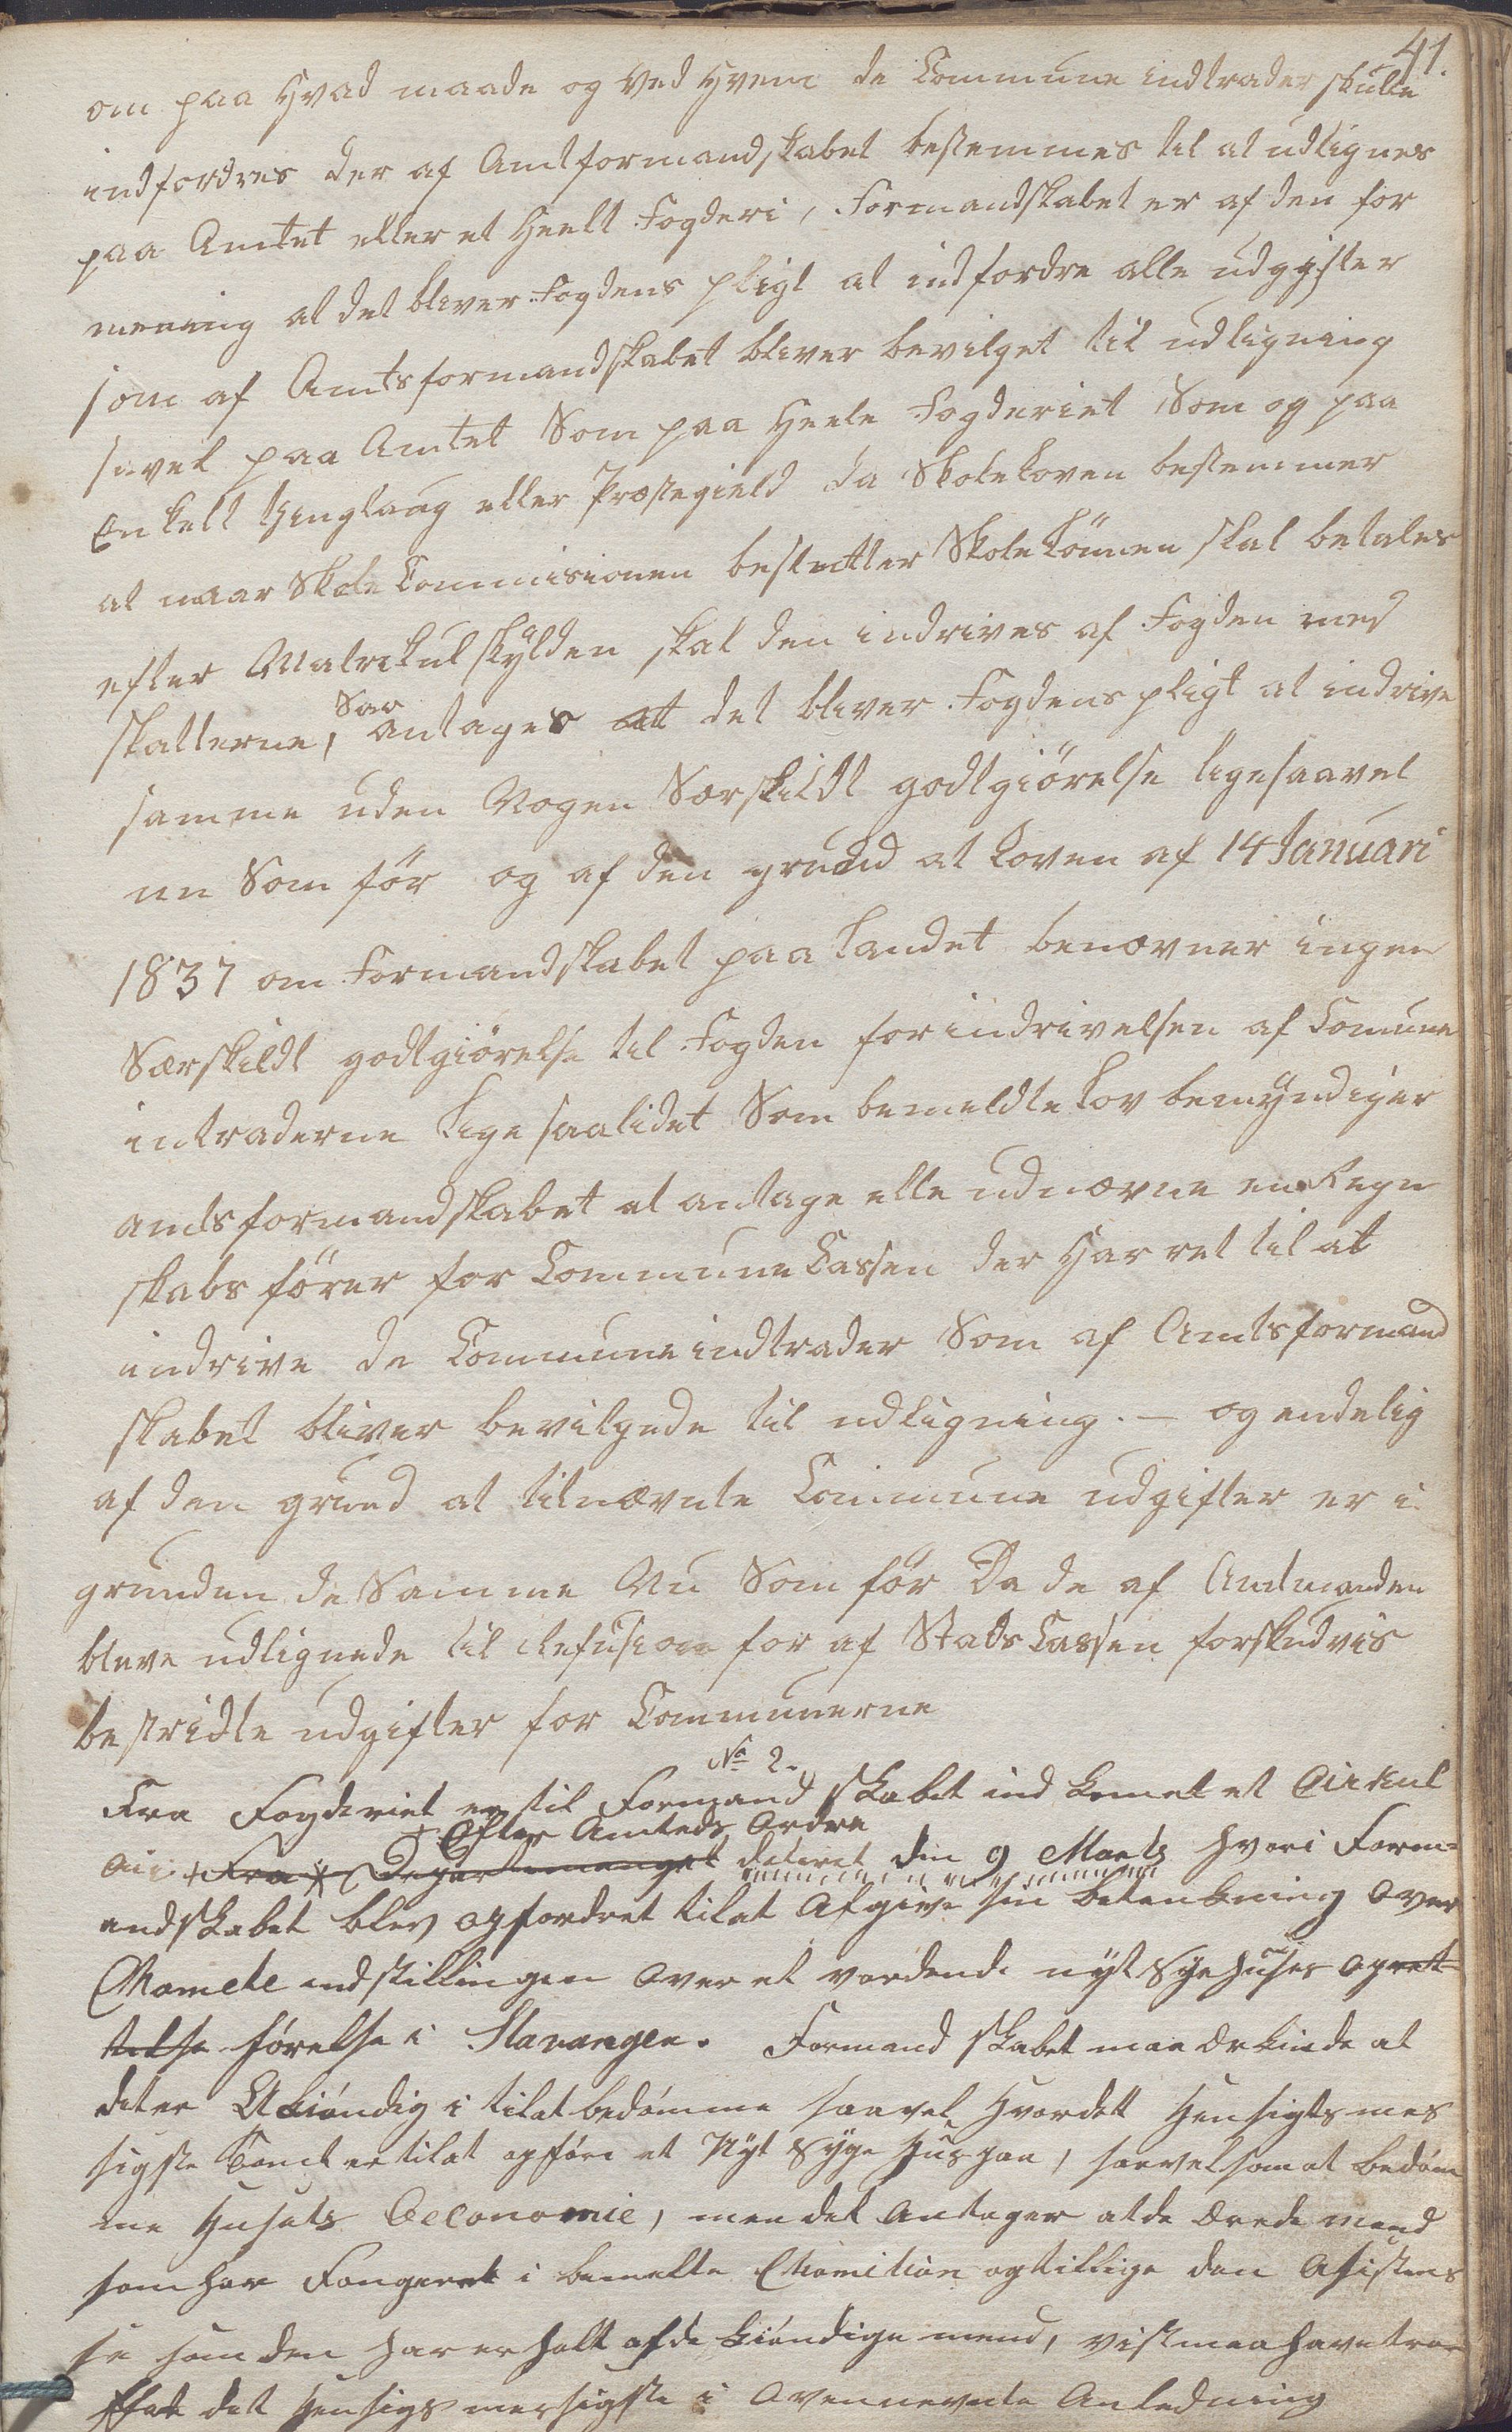 41.
om paa Hvad maade og ved Hvem de Commune indtrader skulle
indfordres der af Amtformandskabet bestemmes til at udlignes
paa Amtet eller et Heelt Fogderi, Formandskabet er af den for
mening at det bliver Fogdens pligt at indfordre alle udgifter
som af Amtsformandskabet bliver bevilget til udligning
savel paa Amtet Som paa Heele Fogderiet Som og paa
Enkelt Thinglaug eller Præstegield da Skoleloven bestemmer
at naar Skole Commisionen beslutter Skolelönnen skal betales
efter Matrikul skÿlden skal den indrives af Fogden med
skatterne, Saa antages at det bliver Fogdens pligt at indrive
samme uden Nogen Særskildt godtgiörelse ligesaavel
nu Som för og af den grund at Loven af 14 Januari
1837 om Formandskabet paa Landet benævner ingen
Særskildt godtgiörelse til Fogden for indrivelsen af Comune
intraderne Lige saalidet Som bemeldte Lov bemÿndiger
amtsformandskabet at antage elle udnævne en Regn
skabs förer for Commune Cassen der Har ret til at
indrive de Commune indtrader Som af Amtsformand
skabet bliver bevilgede til udligning. — og endelig
af den grund at titnævnte Commune udgifter er i
grunden de Samme Nu Som för Da de af Amtmanden
bleve udlignede til Refusion for af Stads Cassen forskudvis
bestridte udgifter for Communerne
No 2.
Fra Fogderiet er til Formandskabet ind komet et Cirkul
+ Efter Amteds Ordre
air + Fra * Departemenget dateret den 9 Marts hvori Form=
andskabet blev opfordret til at Afgive sin betenkning over
Chomete indstillingen over et vordende nÿt Sÿehuses opret
telse förelse i Stavanger. Formandskabet maa Erkiende at
det er Ukiöndig i til at bedömme saavel Hvordett Hensigtsmes
sigste Tomt er til at opföre et Nÿt Sÿge Hus paa, saavelsom at bedöm
me Husets Oeconomie, men det Antager at de Ærede Mend
som har Fongeret i bemelte Chomition og tillige den Asistens
se som den har er holt af de kiöndige mend, vist maa have traa
ffet det Hensigsmessigste i Ovennevnte Anledning